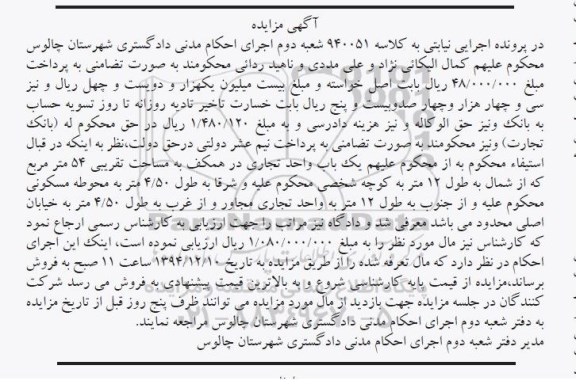 آگهی مزایده
در پرونده اجرایی نیابتی به کلاسه ۹۴۰۰۵۱ شعبه دوم اجرای احکام مدنی دادگستری شهرستان چالوس
محکوم علیهم کمال الیکائی نژاد و علی مددی و ناهید ردائی محکومند به صورت تضامنی به پرداخت
مبلغ ۴۸/۰۰۰/۰۰۰ ریال بابت اصل خواسته و مبلغ بیست میلیون یکهزار و دویست و چهل ریال و نیز
سی و چهار هزار وچهار صدوبیست و پنج ریال بابت خسارت تاخیر تادیه روزانه تا روز تسویه حساب
به بانک ونیز حق الوکاله و نیز هزینه دادرسی و به مبلغ ۱/۴۸۰/۱۲۰ ریال در حق محکوم له (بانک
تجارت) ونیز محکومند به صورت تضامنی به پرداخت نیم عشر دولتی درحق دولت،نظر به اینکه در قبال
استیفاء محکوم به از محکوم علیهم یک باب واحد تجاری در همکف به مساحت تقریبی ۵۴ متر مربع
که از شمال به طول ۱۲ متر به کوچه شخصی محکوم علیه و شرقا به طول ۴/۵۰ متر به محوطه مسکونی
محکوم علیه و از جنوب به طول ۱۲ متر به واحد تجاری مجاور و از غرب به طول ۴/۵۰ متر به خیابان
اصلی محدود می باشد معرفی شد و دادگاه نیز مراتب را جهت ارزیابی به کارشناس رسمی ارجاع نمود
که کارشناس نیز مال مورد نظر را به مبلغ ۱/۰۸۰/۰۰۰/۰۰۰ ریال ارزیابی نموده است، اینک این اجرای
احکام در نظر دارد که مال تعرفه شده را از طریق مزایده به تاریخ ۱۳۹۴/۱۲/۱۰ ساعت ۱۱ صبح به فروش
برساند،مزایده از قیمت پایه کارشناسی شروع و به بالاترین قیمت پیشنهادی به فروش می رسد شرکت
کنندگان در جلسه مزایده جهت بازدید از مال مورد مزایده می توانند ظرف پنج روز قبل از تاریخ مزایده
به دفتر شعبه دوم اجرای احکام مدنی دادگستری شهرستان چالوس مراجعه نمایند.
مدیر دفتر شعبه دوم اجرای احکام مدنی دادگستری شهرستان چالوس